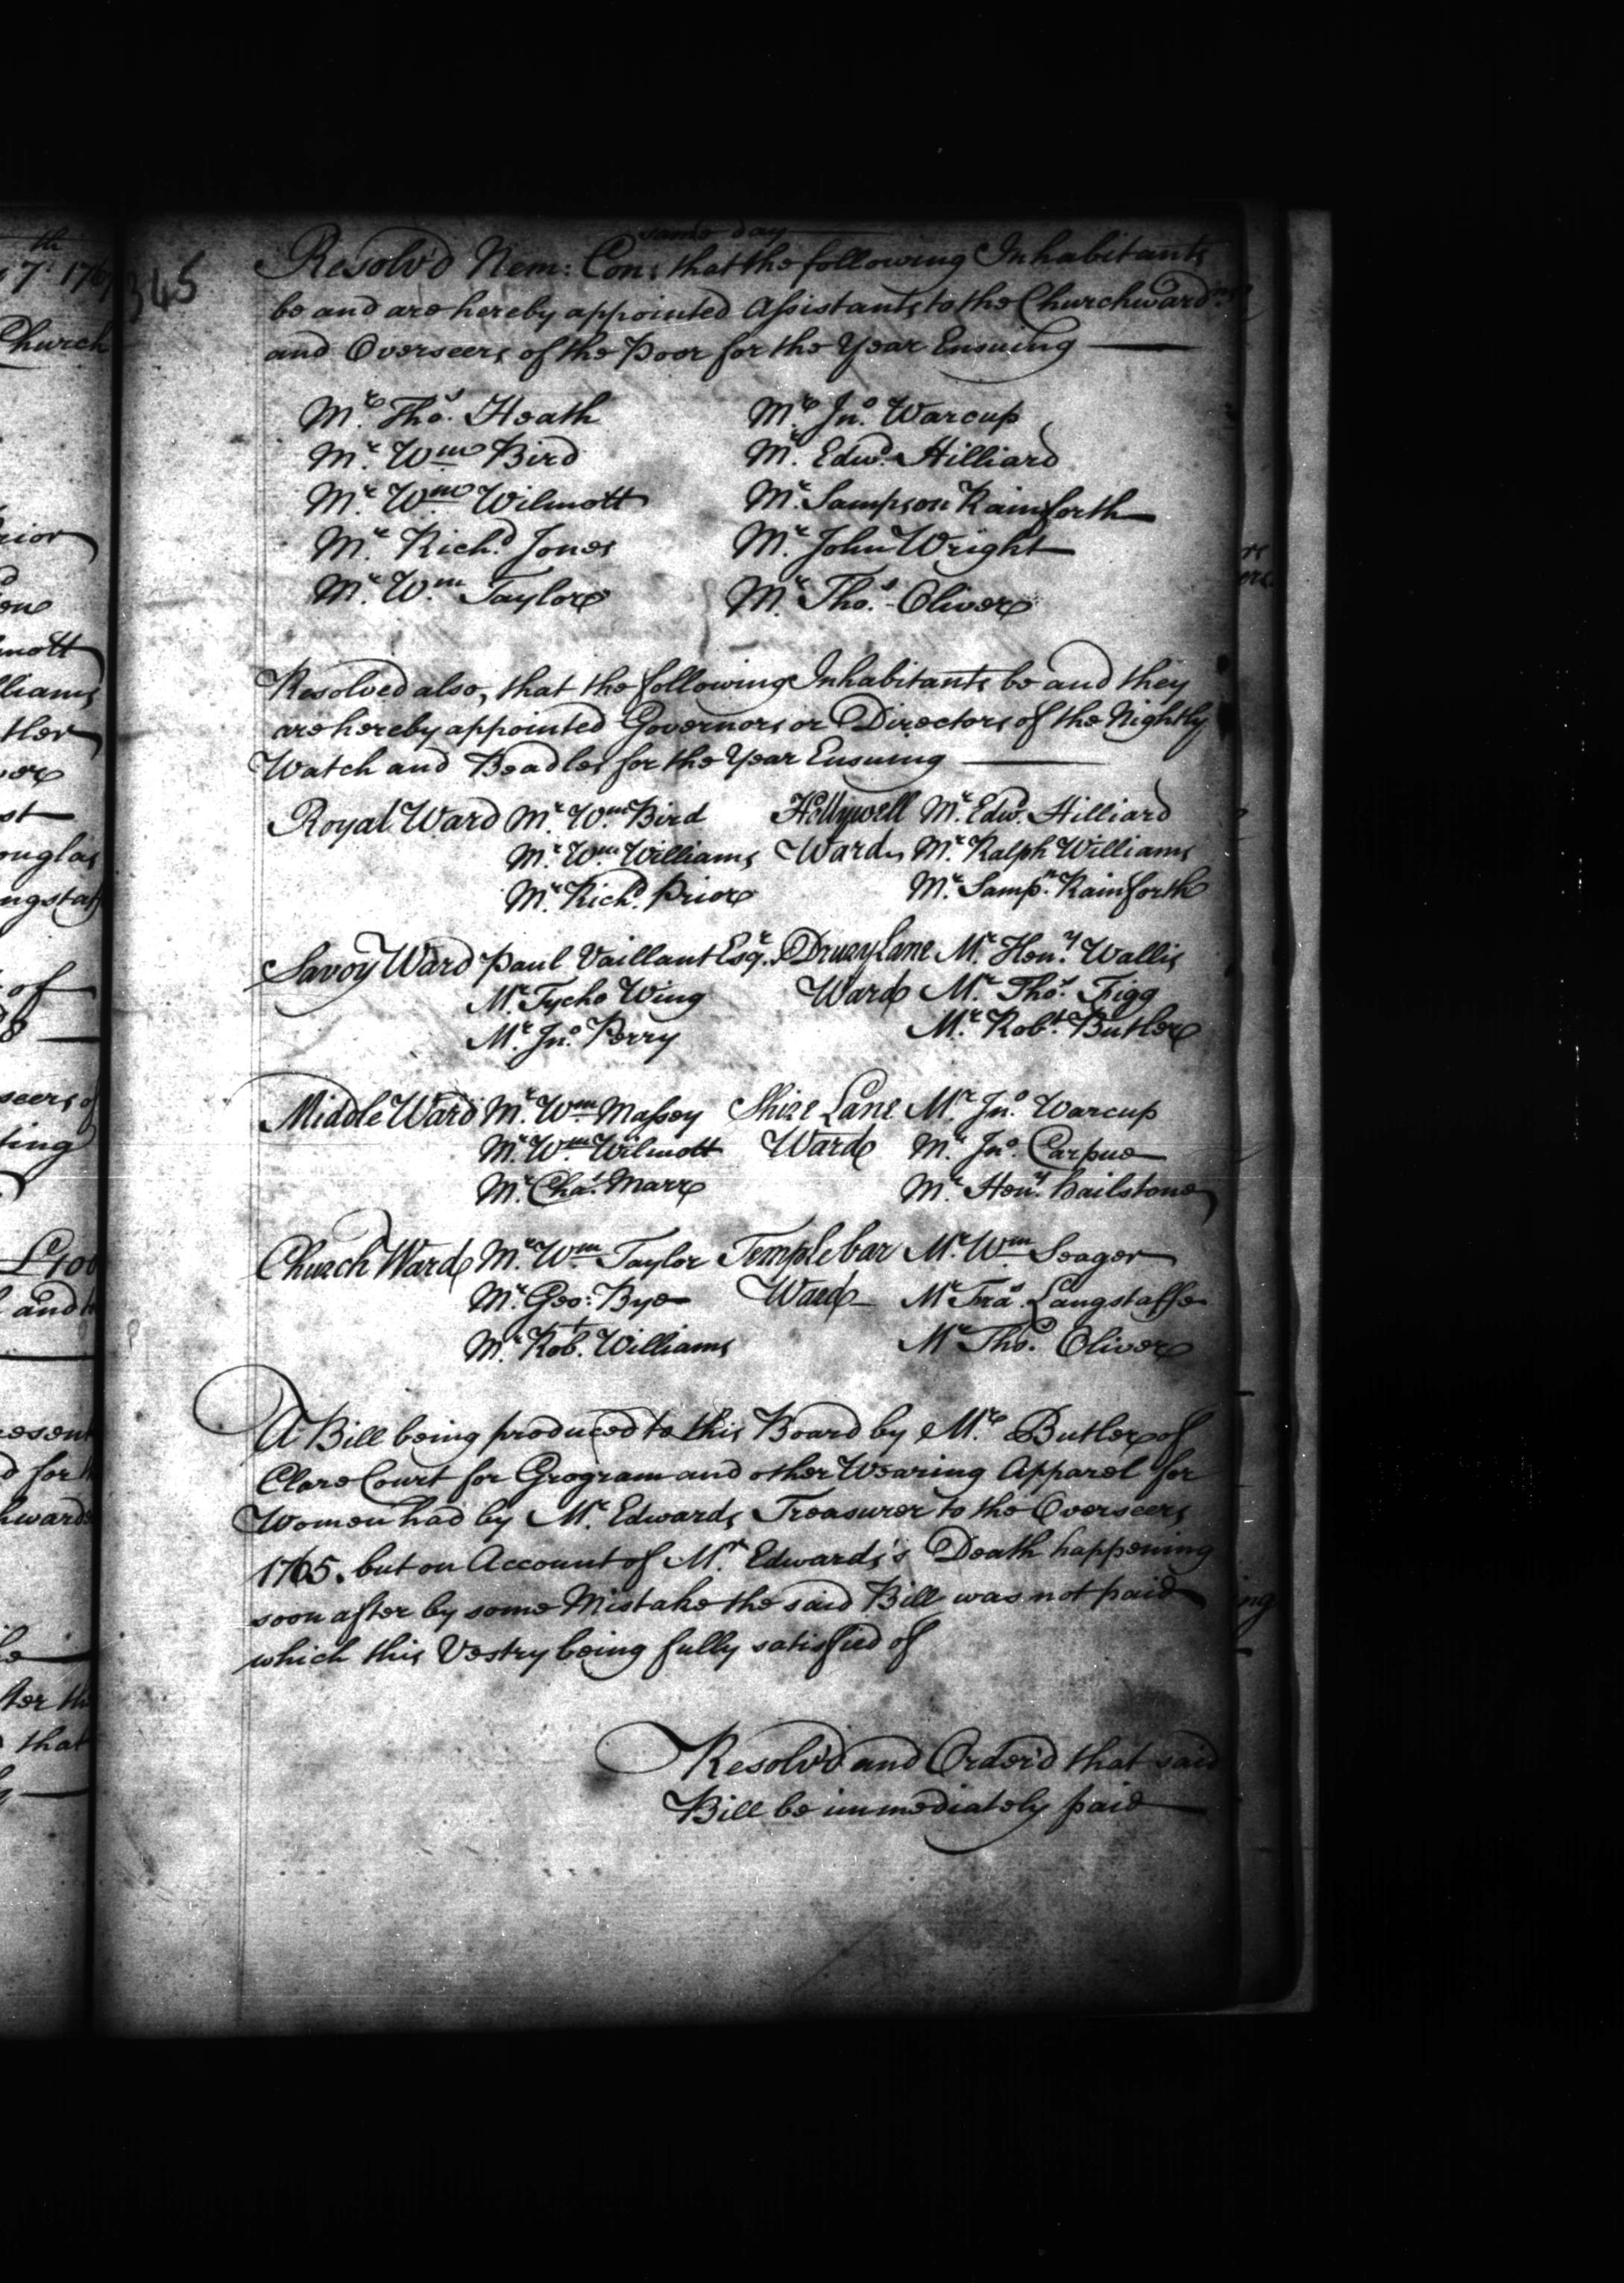 same day
345
Resolv'd Nem: Con: that the following Inhabitants
be and are hereby appointed Assistants to the Churchward.ns
and Overseers of the Poor for the Year Ensuing
Mr. Thos. Heath Mr. Jno. Warcup
Mr. Wm. Bird Mr. Edwd. Hilliard
Mr. Wm. Wilmott Mr. Sampson Rainforth
Mr. Richd. Jones Mr. John Wright
Mr. Wm. Taylor Mr. Thos. Oliver
Resolved also, that the following Inhabitants be and they
are hereby appointed Governors or Directors of the Nightly
Watch and Beadles for the Year Ensuing
Royal Ward Mr. Wm. Bird Hollywell Mr. Edwd. Hilliard
Mr. Wm. Williams Ward Mr. Ralph Williams
Mr. Richd. Prior Mr. Sampn. Rainforth
Savoy Ward Paul Vaillant Esqr. Drury Lane Mr. Heny. Wallis
Mr. Tycho Wing Ward Mr. Thos. Figg
Mr. Jno. Perry Mr. Robt. Butler
Middle Ward Mr. Wm. Massey Shire Lane Mr. Jno. Warcup
Mr. Wm. Wilmott Ward Mr. Jno. Carpue
Mr. Chas. Marr Mr. Heny. Hailstone
Church Ward Mr. Wm. Taylor Temple bar Mr. Wm. Seager
Mr. Geo: Bye Ward Mr. Fras. Langstaffe
Mr. Robt. Williams Mr. Thos. Oliver
A Bill being produced to this Board by Mr. Butler of
Clare Court for Grogram and other Wearing Apparel for
Women had by Mr. Edwards Treasurer to the Overseers
1765. but on Account of Mr. Edwards's Death happening
soon after by some Mistake the said Bill was not paid
which this Vestry being fully satisfied of
Resolv'd and Order'd that said
Bill be immediately paid